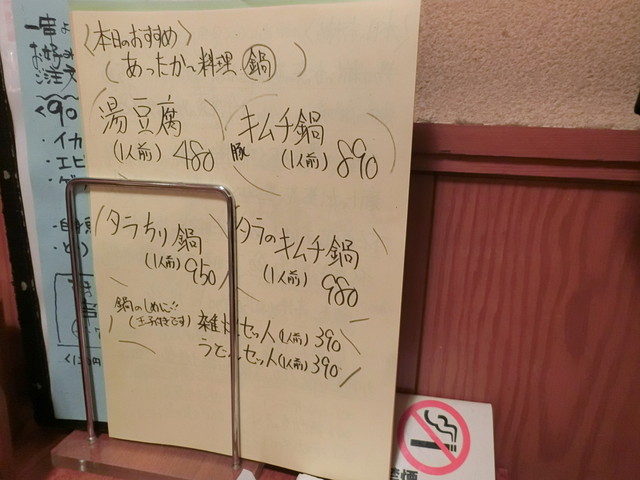 〈本日のおすすめ〉
(あったか〜料理 鍋)
湯豆腐
(1人前) 480
豚キムチ鍋
(1人前) 890
タラちり鍋
(1人前) 950
タラのキムチ鍋
(1人前) 980
鍋のしめに!!
(玉子付きです)
雑炊セット(1人前) 390
うどんセット(1人前) 390
一串よ
お好み
注文
<90
・イカ
・エビ